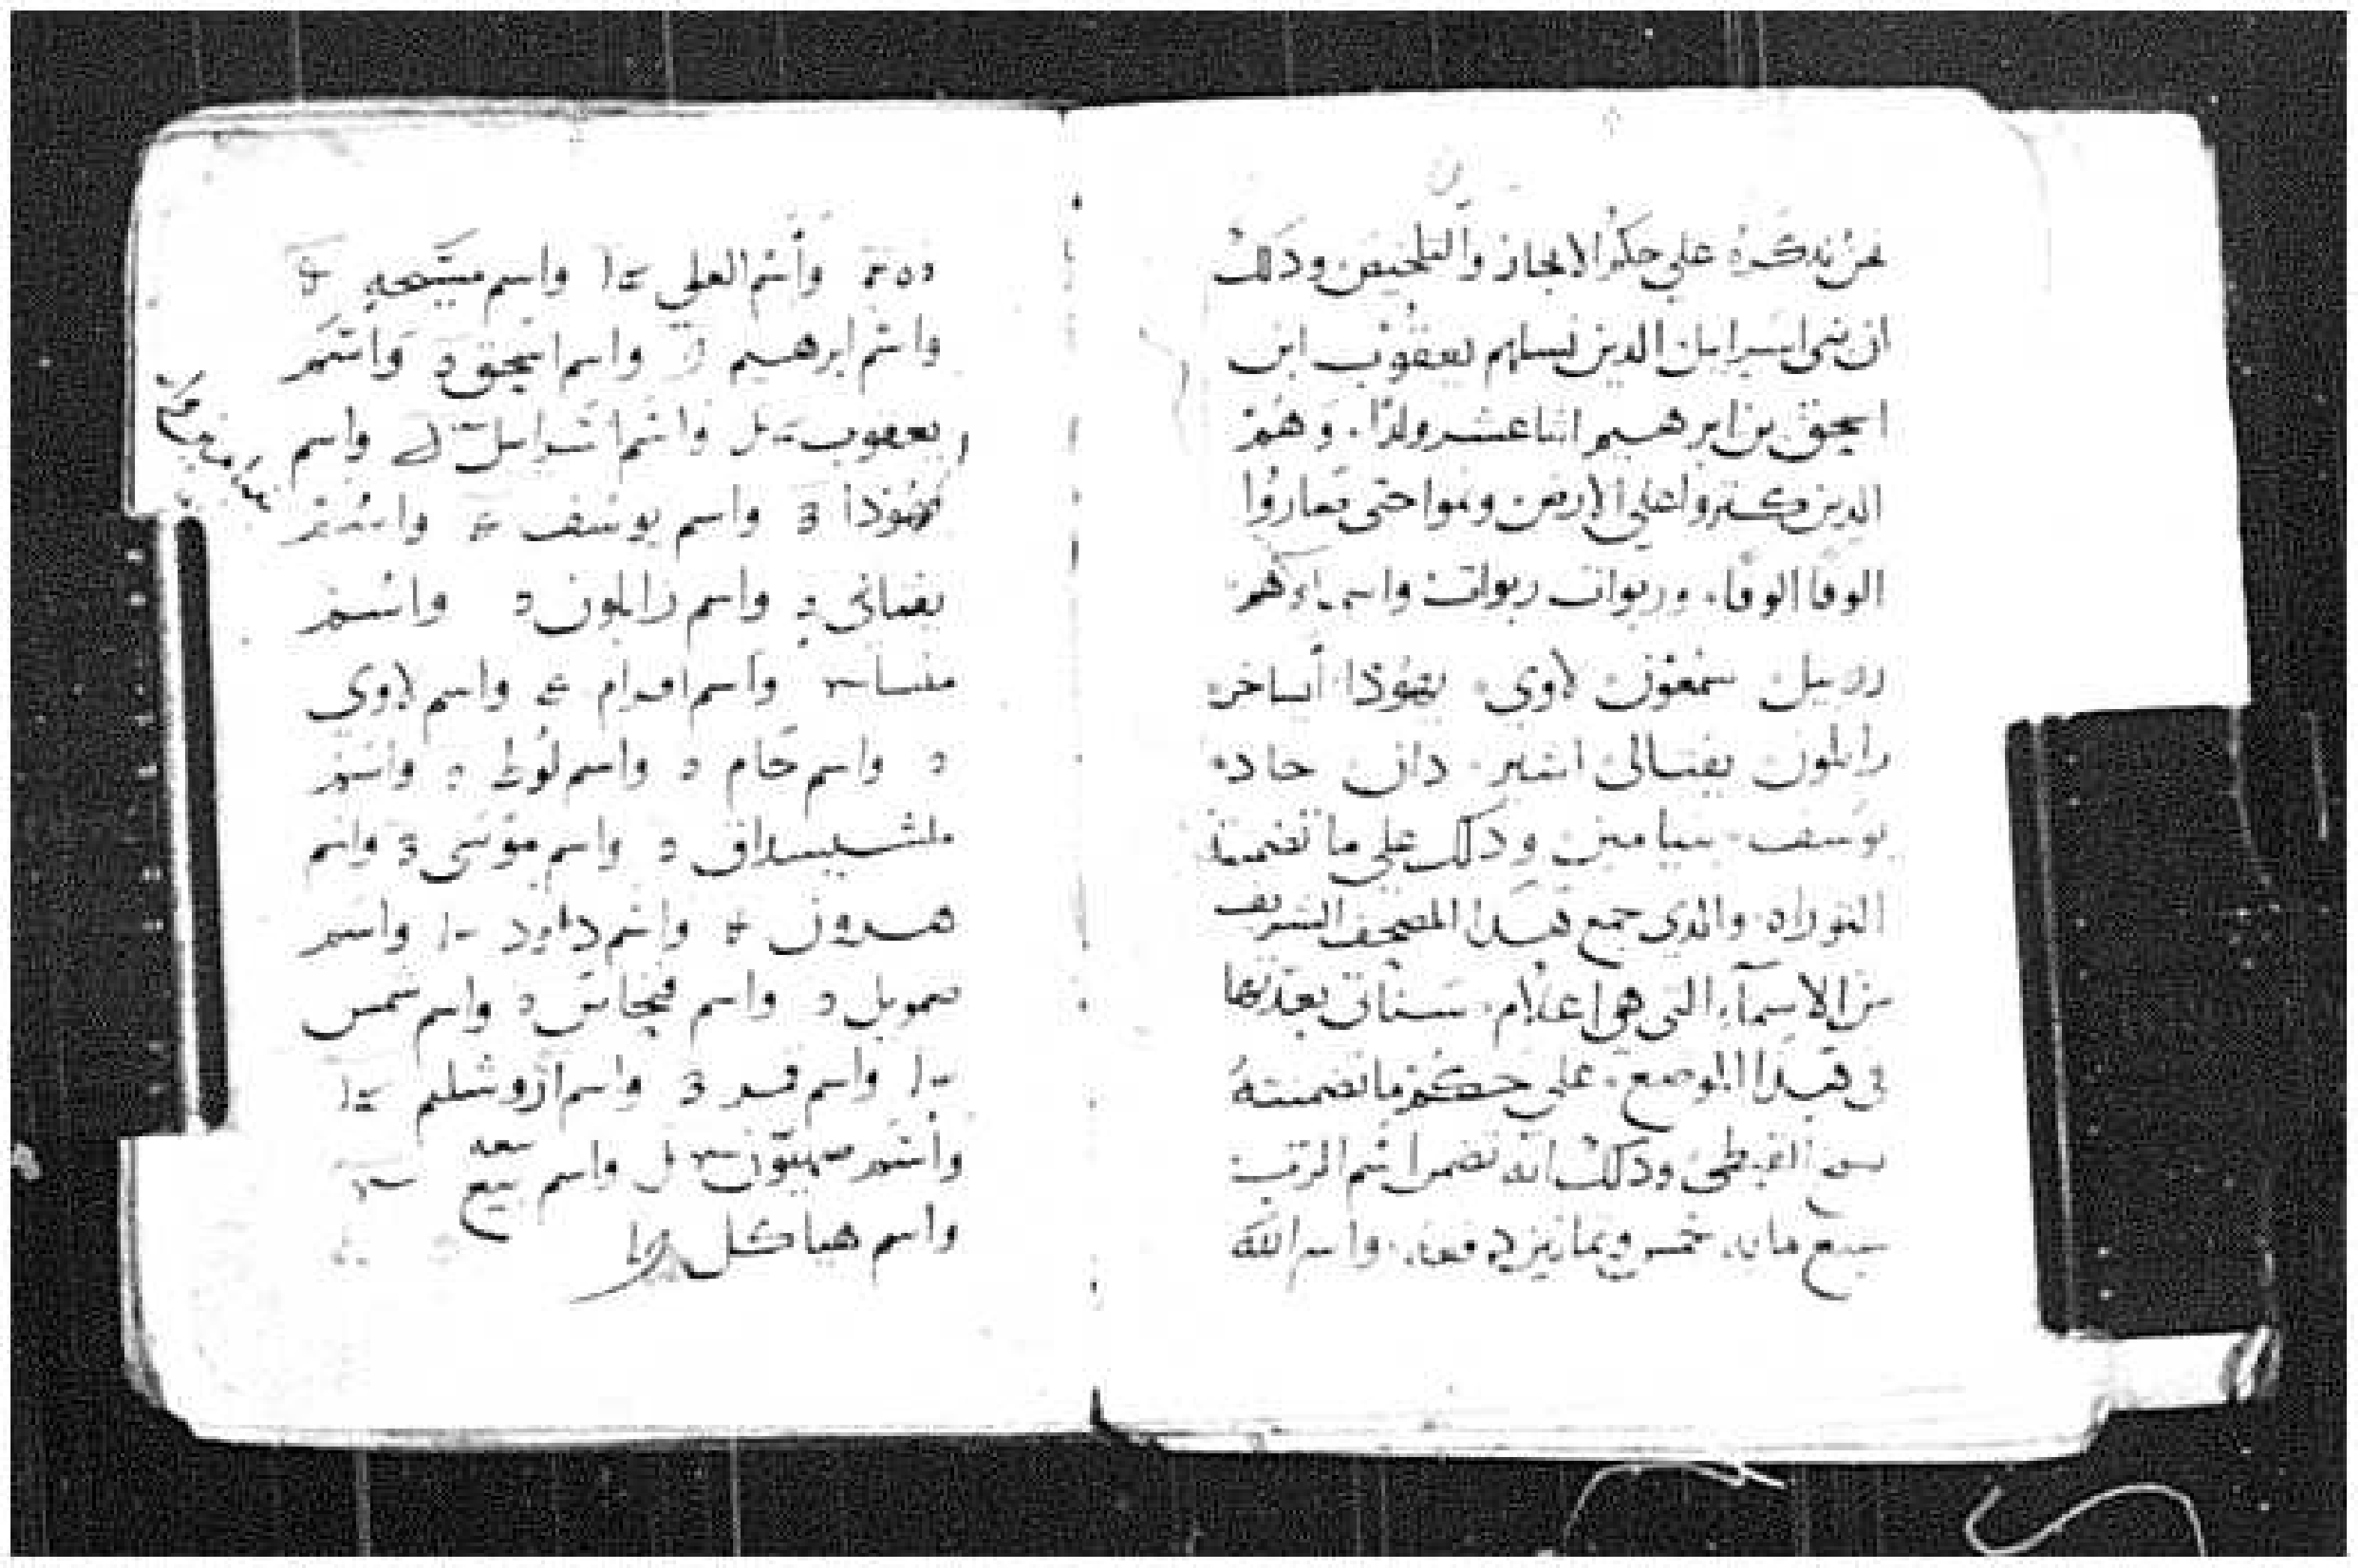 نحن نذكره على حكم الايجاز والتلخيص وذلك
ان بني اسراييل الذين نسلهم يعقوب ابن
اسحق بن ابرهيم اثنا عشر ولدًا. وهم
الذين كثروا على الارض ونموا حتى صاروا
الوفا الوفا. وربوات ربوات واسماوهم
روبيل شمعون لاوي يهوذا ايساخر
زابلون يفتالي اشير دان جاد
يوسف بنيامين وذلك على ما تضمنته
التوراه والذي جمع هذا المصحف الشريف
من الاسماء التي هي اعلام. سناتي بعدتها
في هذا الموضع. على حكم ما تضمنته
القبطي وذلك انه تضمن اسم الرب
سبع مايه خمس وثمانين دفعه. واسم الله
واسم العلي واسم مسيحه
واسم ابرهيم واسم اسحق واسم
يعقوب واسم اسراييل واسم
يهوذا واسم يوسف واسم
يفتالي واسم زابلون واسم
منسا واسم افرام واسم لاوي
واسم حام واسم لوط واسم
ملشيسداق واسم موسى واسم
هرون واسم داود واسم
صمويل واسم فنحاس واسم شمس
واسم قمر واسم اروشلم
واسم صهيون واسم بيع بيعه
واسم هياكل